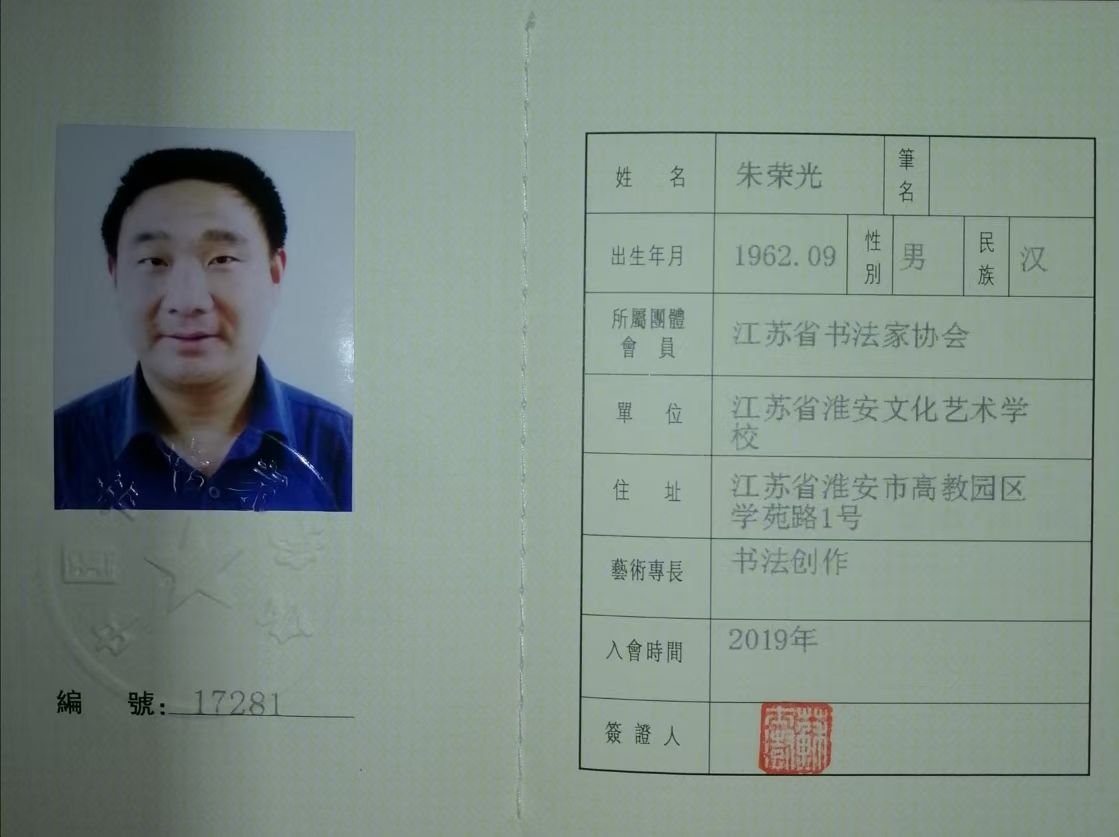 編 號: 17281
姓 名 朱荣光 筆名
出生年月 1962.09 性別 男 民族 汉
所屬團體
會 員 江苏省书法家协会
單 位 江苏省淮安文化艺术学
校
住 址 江苏省淮安市高教园区
学苑路1号
藝術專長 书法创作
入會時間 2019年
簽證人